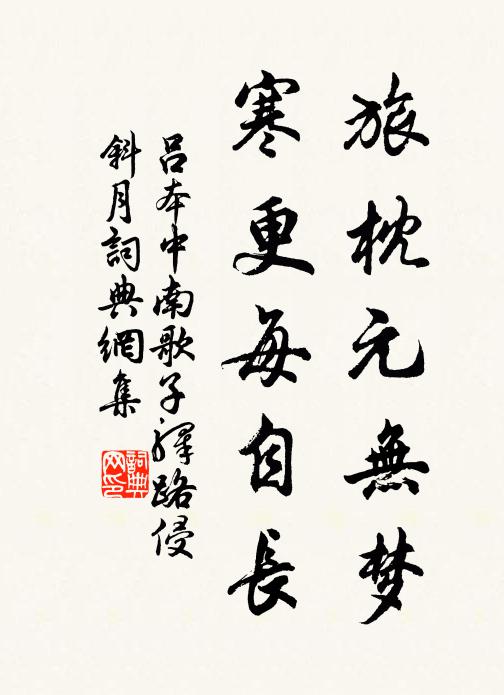 旅枕元無梦
寒更每自長
呂本中南歌子驛路侵
斜月詞典網集
詞典网印